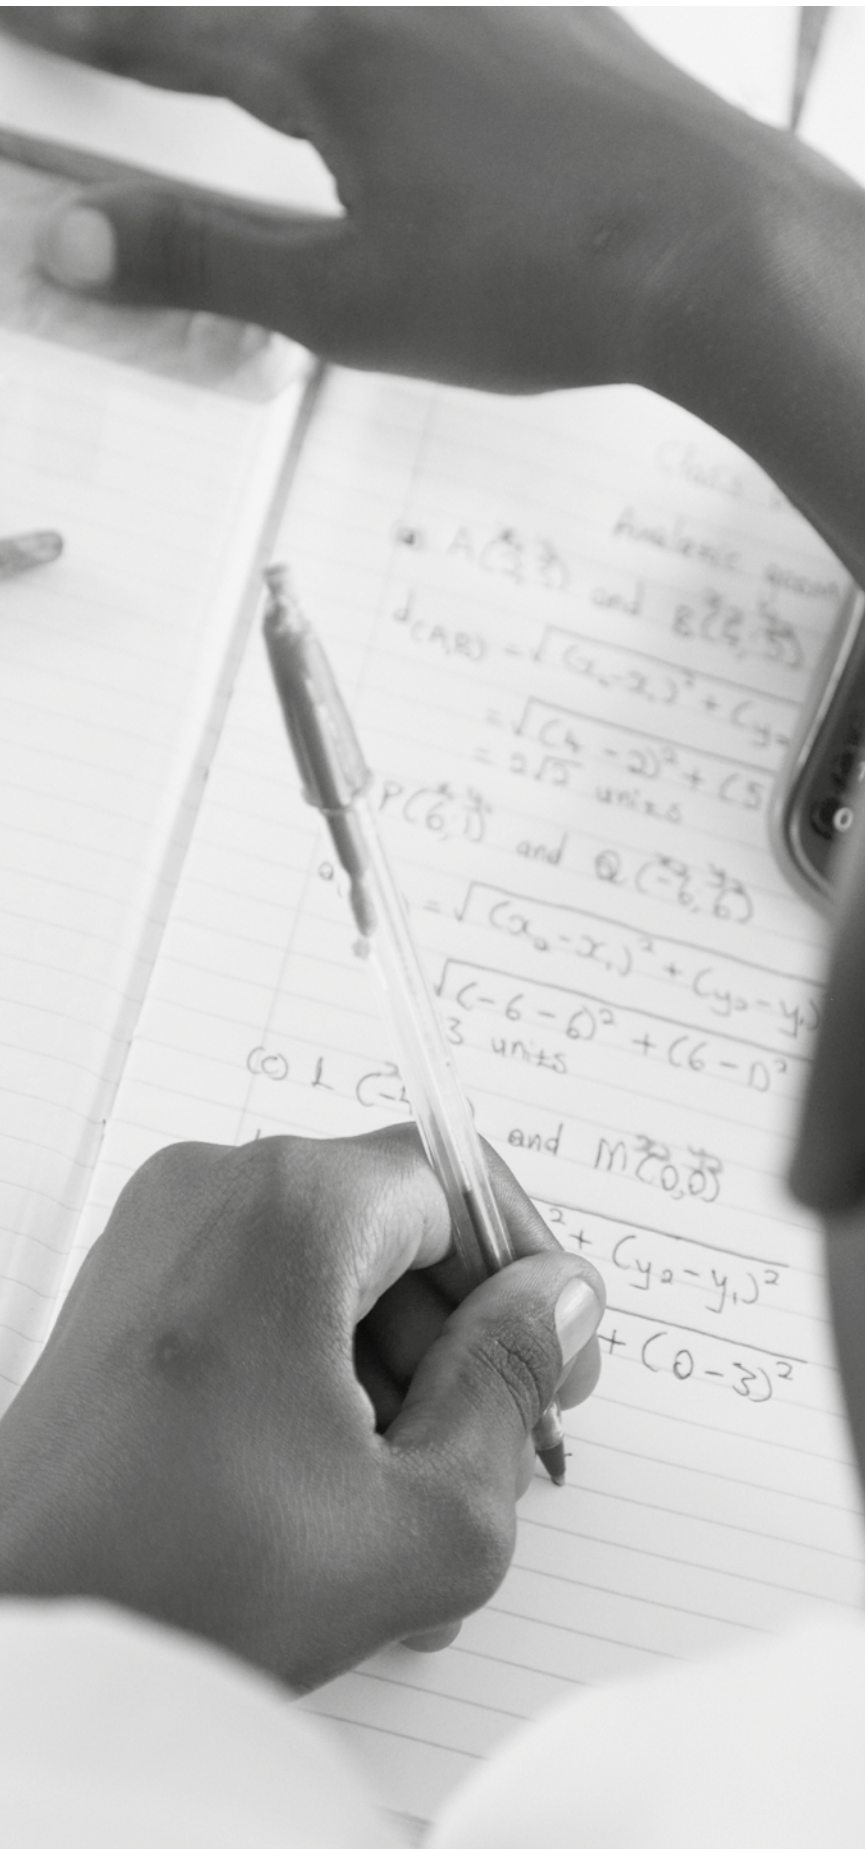 Class
Analytic geom
A(2,3) and B(4,5)
d(A,B) = √(x₂-x₁)² + (y₂
= √(4-2)² + (5
= 2√2 units
P(6,1) and Q(-6,6)
= √(x₂-x₁)² + (y₂-y₁)
√(-6-6)² + (6-1)²
3 units
(c) L (-4 and M(0,0)
² + (y₂-y₁)²
+ (0-3)²